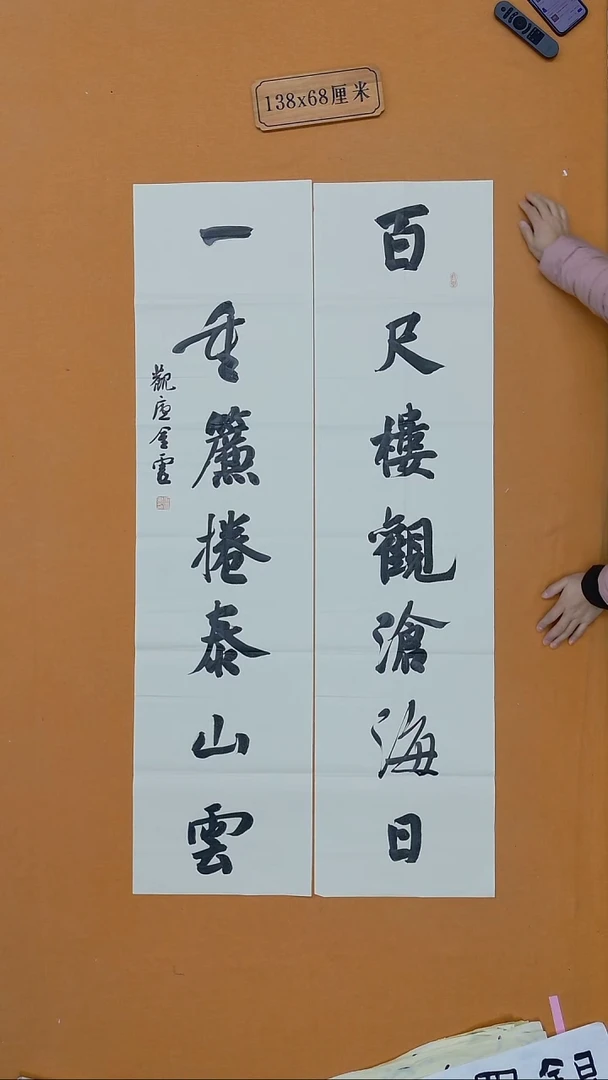 138x68厘米
百尺樓觀滄海日
一重簾捲泰山雲
觀廬金霞